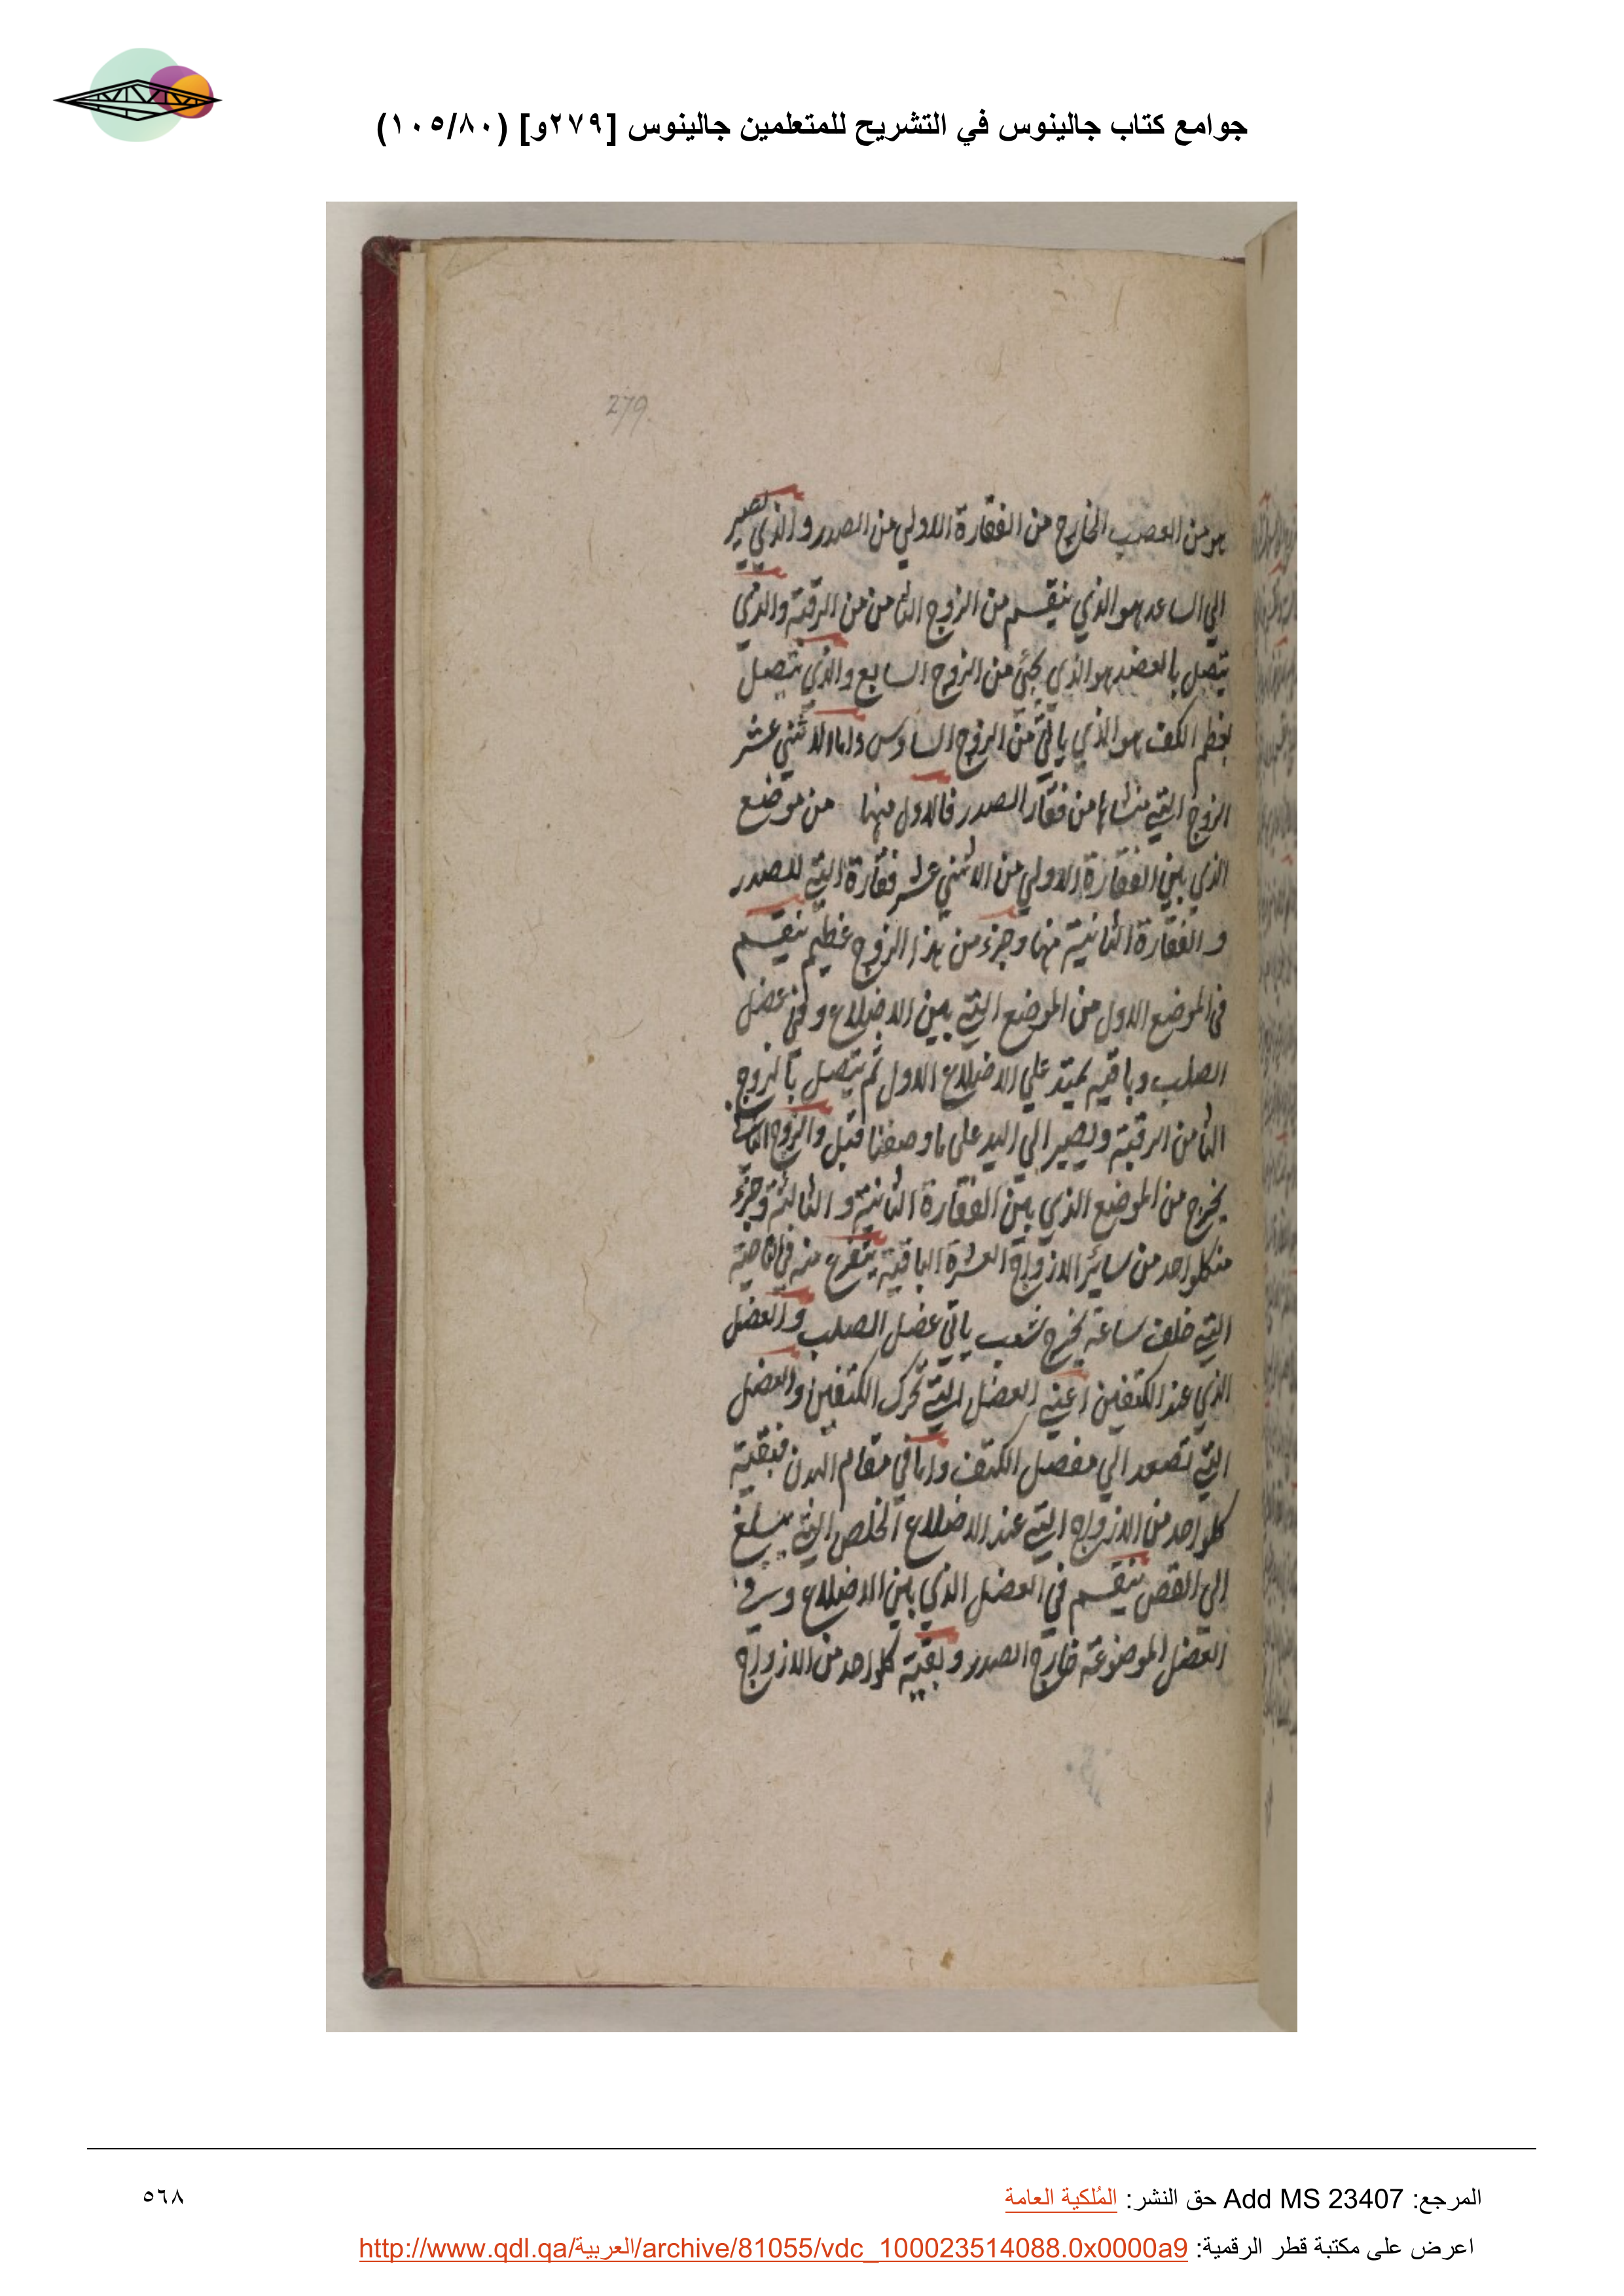 جوامع كتاب جالينوس في التشريح للمتعلمين جالينوس [٢٧٩و] (١٠٥/٨٠)
279
هو من العصب الخارج من الفقارة الاولي من الصدر والذي يصير
الي الساعد هو الذي ينقسم من الزوج الثامن من الرقبة والذي
يتصل بالعضد هو الذي يجئ من الزوج السابع والذي يتصل
بعظم الكتف هو الذي ياتي من الزوج السادس واما الاثني عشر
الزوج التي منشاها من فقار الصدر فالاول منها من موضع
الذي بين الفقارة الاولي من الاثني عشر فقارة التي للصدر
والفقارة الثانية منها وجزء من هذا الزوج عظيم ينقسم
في الموضع الاول من الموضع التي بين الاضلاع وفي عضل
الصلب وباقيه يمتد علي الاضلاع الاول ثم يتصل بالزوج
الثامن الرقبة ويصير الي اليد علي ما وصفنا قبل والزوج الثاني
يخرج من الموضع الذي بين الفقارة الثانية والثالثة وجزء
منكلواحد من سائر الازواج العشرة الباقية يتفرع منه في الناحية
التي خلف ساعة يخرج شعب ياتي عضل الصلب والعضل
الذي عند الكتفين اعني العضل التي تحرك الكتفين والعضل
التي تصعد الي مفصل الكتف واما في مقام البدن فبقية
كلواحد من الازواج التي عند الاضلاع الخلص التي يبلغ
الي القص ينقسم في العضل الذي بين الاضلاع وفي
العضل الموضوعة خارج الصدر وبقية كلواحد من الازواج
المرجع: Add MS 23407 حق النشر: المُلكية العامة
٥٦٨
اعرض على مكتبة قطر الرقمية: http://www.qdl.qa/العربية/archive/81055/vdc_100023514088.0x0000a9